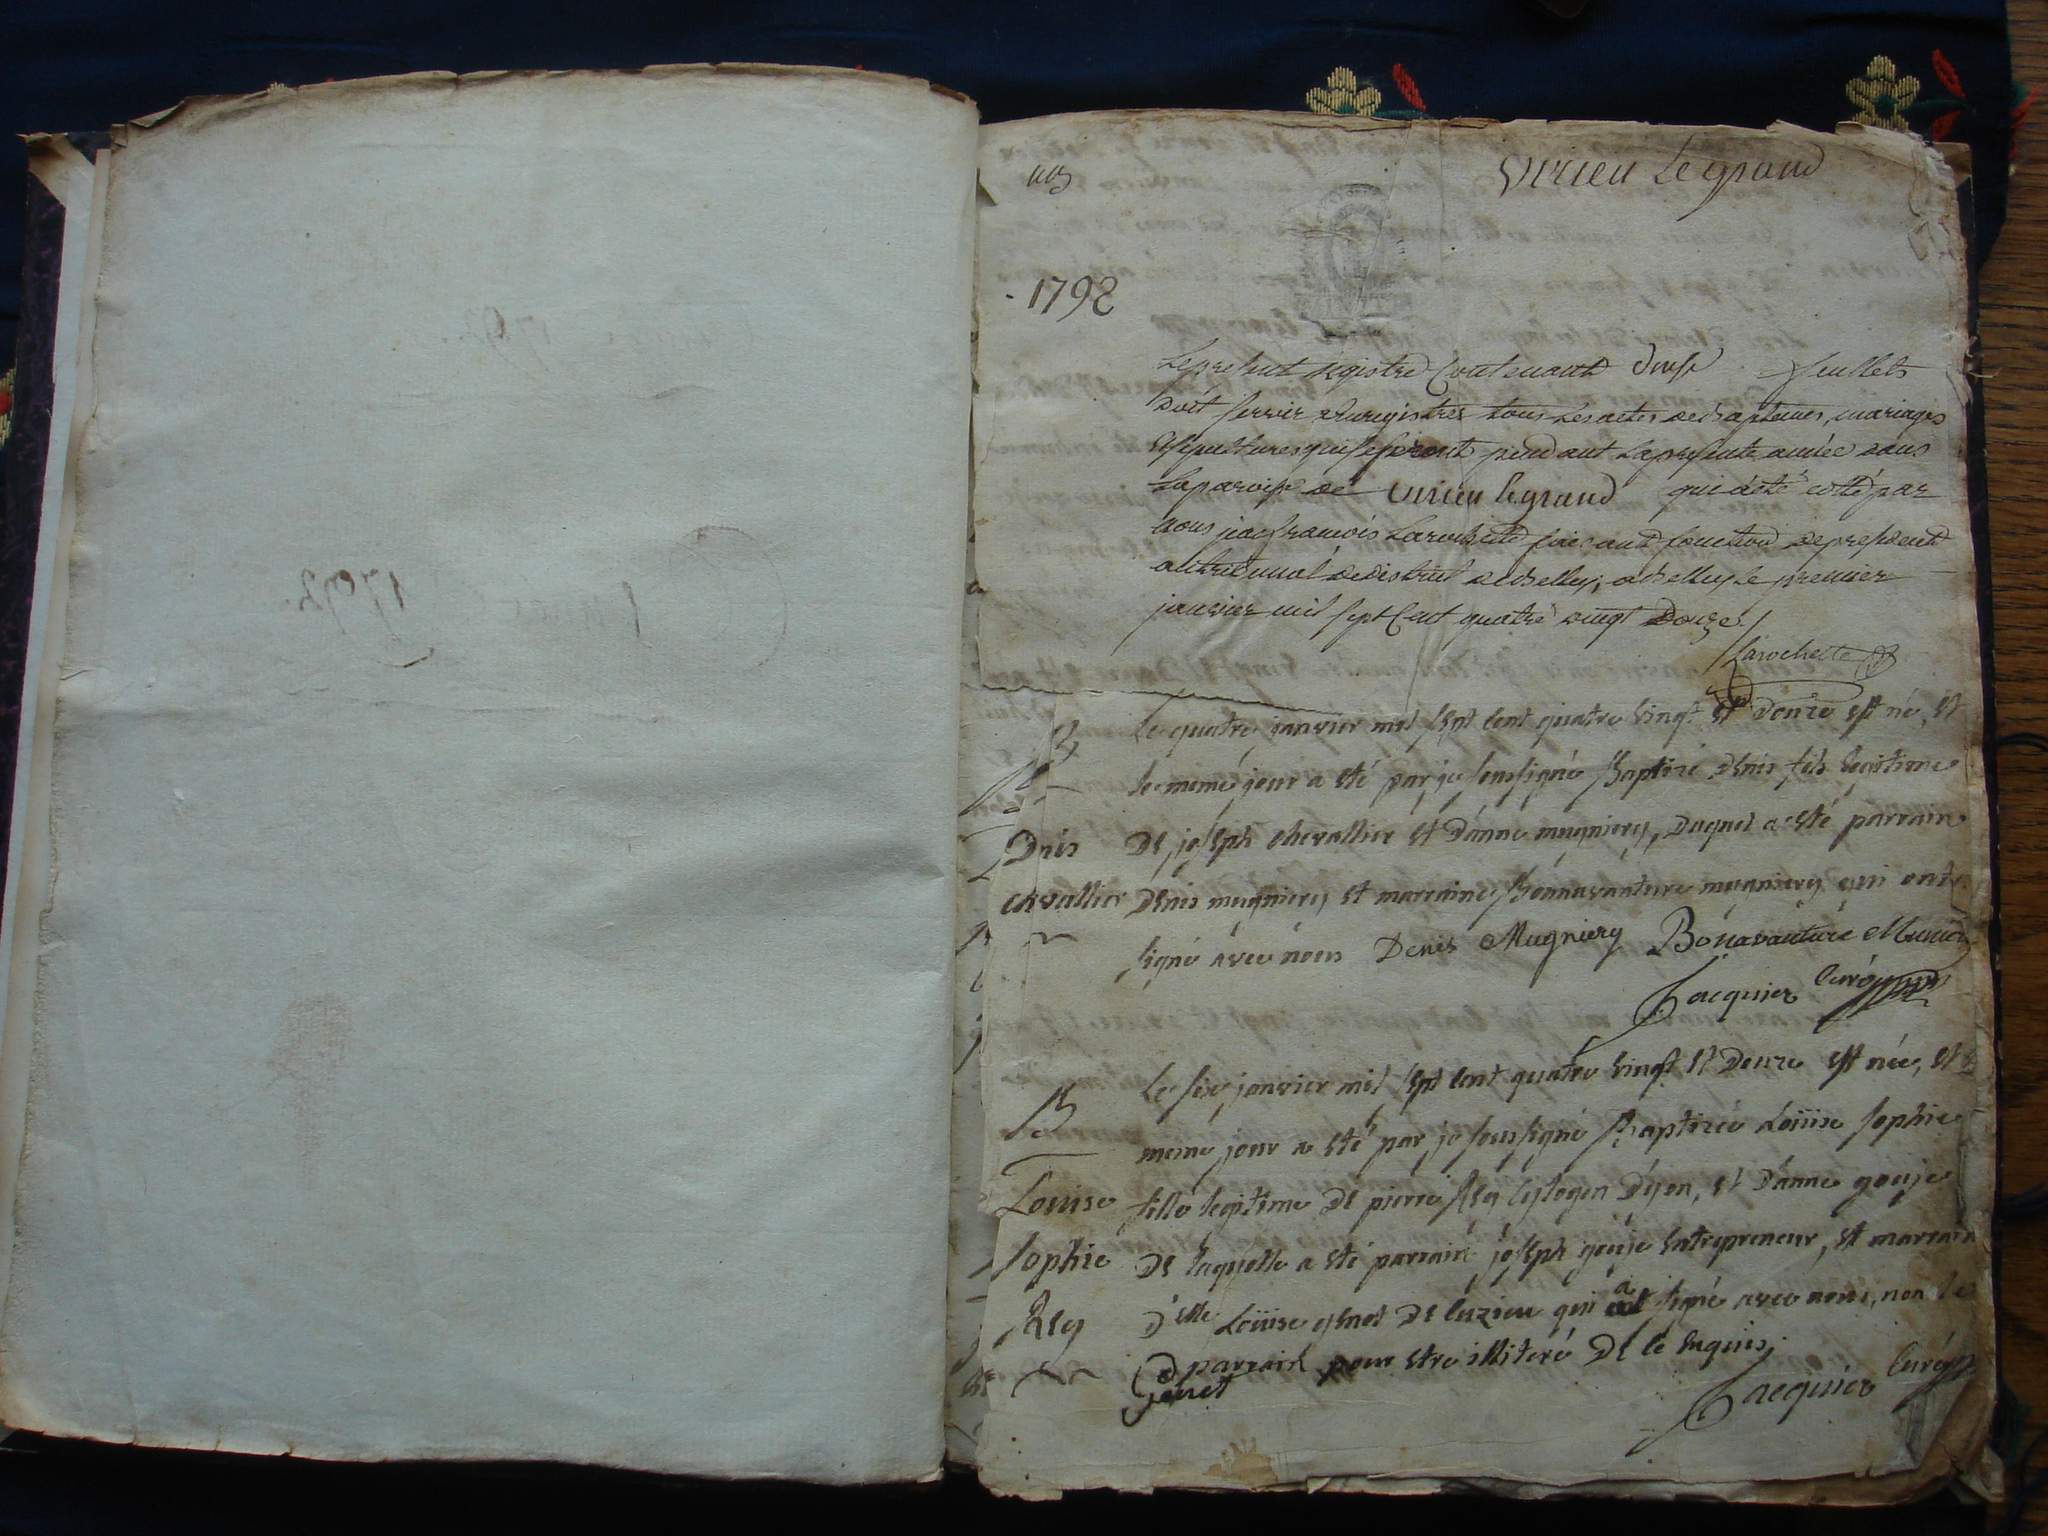 Virieu Le grand
1792
Le present registre Contenant onze feuillets
doit servir a Enregistrer tous les actes de baptemes, mariages
et sepultures qui se feront pendant la presente année dans
la paroisse de virieu le grand qui a été cotté par
nous jean françois Larochette faisant fonction de president
au tribunal de district de belley, a belley le premier
janvier mil sept Cent quatre vingt Douze
Larochette
B Le quatre janvier mil sept cent quatre vingt et Douze est né, et
le meme jour a eté par je soussigné Baptizé Denis fils legitime
Denis De joseph chevallier et D'anne mugniery, Duquel a eté parrain
chevallier Denis mugniery et marraine Bonnavanture mugniery qui ont
signé avec nous Denis Mugniery Bonavanture
Jacquier Curé
Le six janvier mil sept cent quatre vingt et Douze est née, et
B meme jour a eté par je soussigné Baptizée Loüise sophie
Louise fille legitime De pierre Rey D'yon, et D'anne gouje
sophie De laquelle a eté parrain joseph gouje Entrepreneur, et marraine
Rey D'elle Loüise genet De luzieu qui a signé avec nous, non le
parrain pour etre illiteré De ce Enquis
Genet
Jacquier Curé